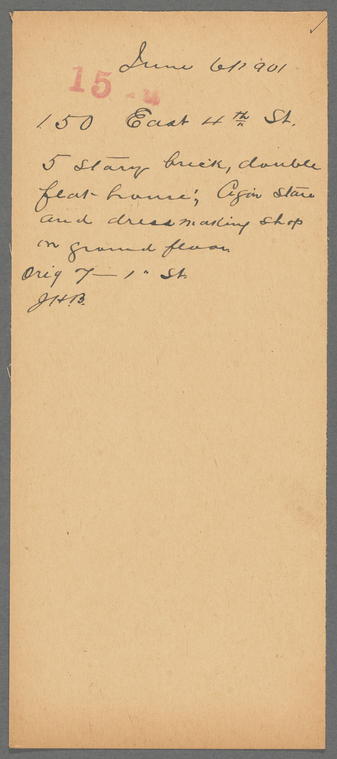 June 6/1901
15
150 East 4th St.
5 story brick, double
flat house; Cigar store
and dressmaking shop
on ground floor
Orig 7 — 1" St.
J.H.B.